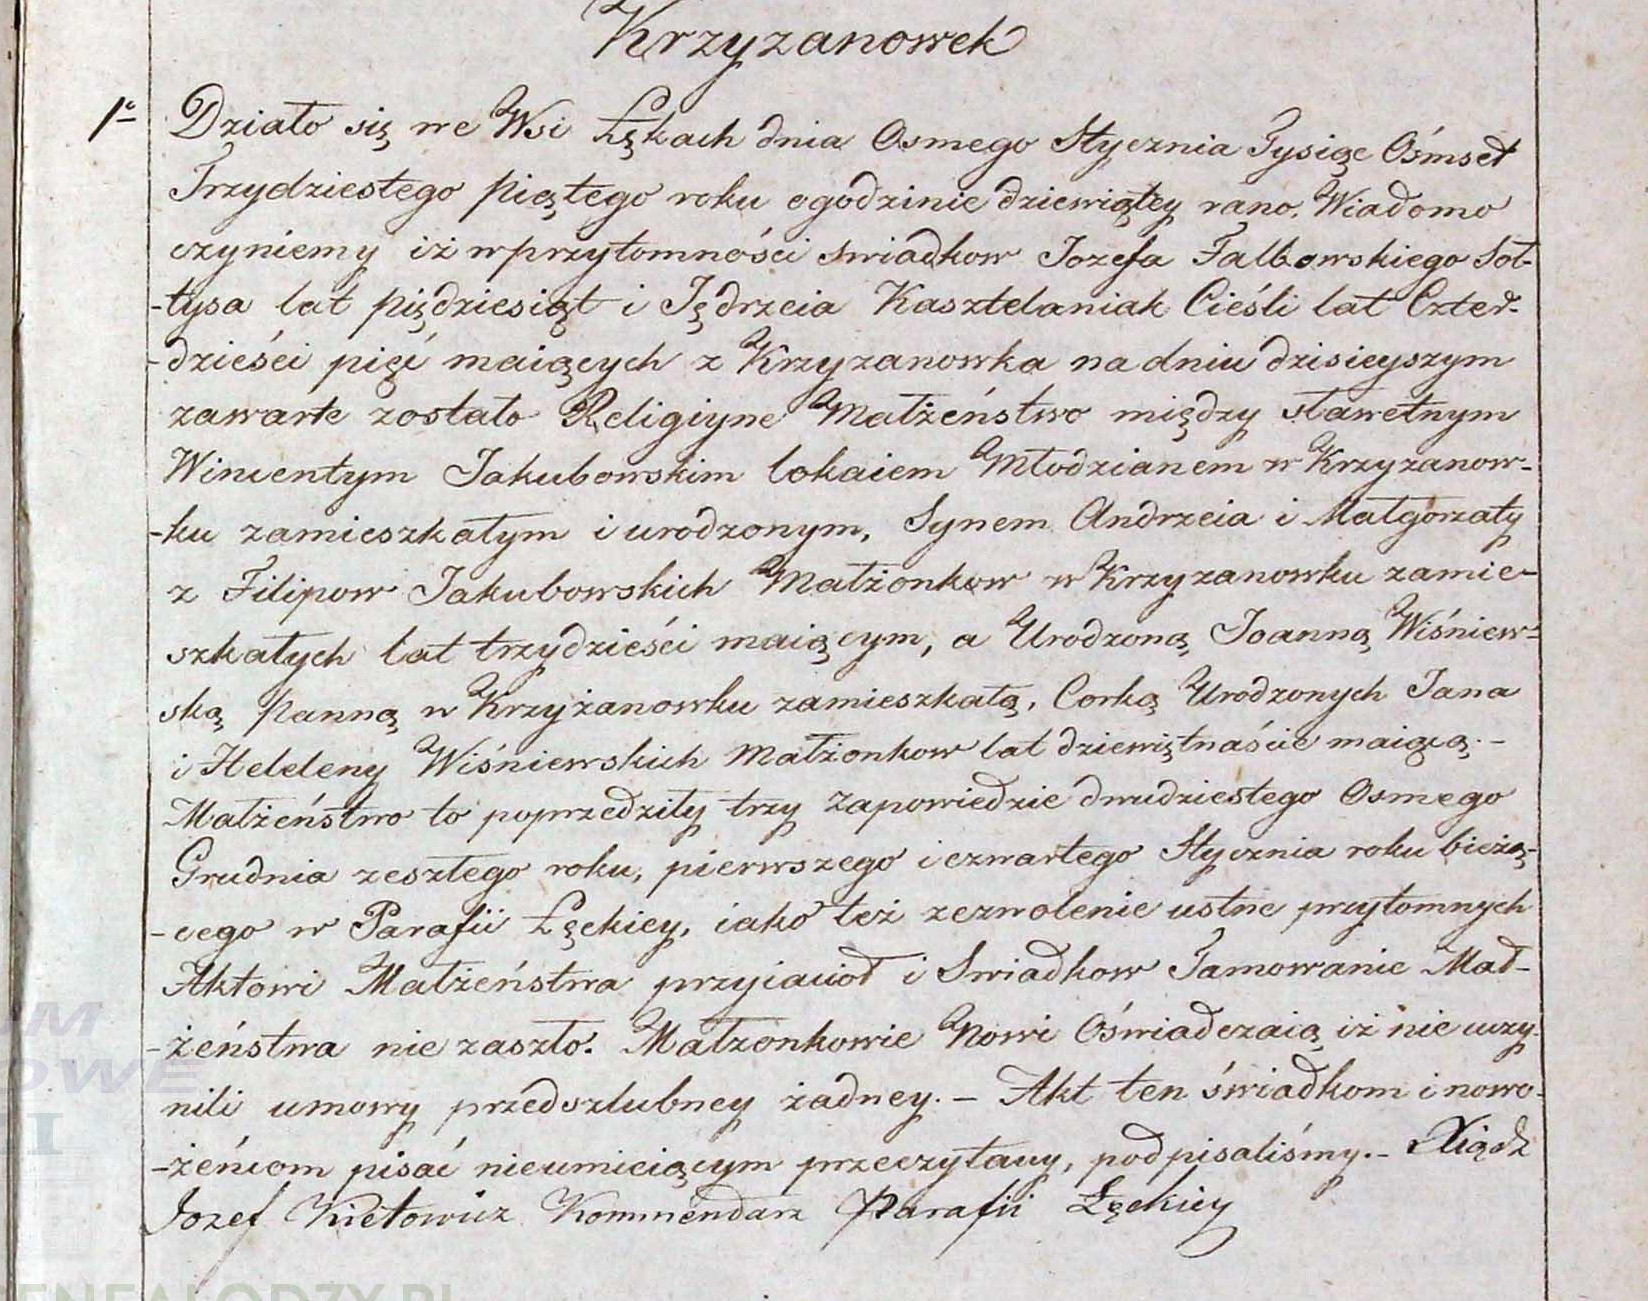 Krzyzanowek
1e Działo się we Wsi Łękach dnia Osmego Stycznia Tysiąc Ośmset
Trzydziestego Piątego roku o godzinie dziewiątey rano. Wiadomo
czyniemy iż w przytomności swiadkow Jozefa Falbowskiego Soł-
-tysa lat piędziesiąt i Jędrzeia Kasztelaniak Cieśli lat Czter-
-dzieści pięć maiących z Krzyzanowka na dniu dzisieyszym
zawarte zostało Religiyne Małżeństwo między sławetnym
Wincentym Jakubowskim lokaiem Młodzianem w Krzyzanow-
-ku zamieszkałym i urodzonym, Synem Andrzeia i Małgorzaty
z Filipow Jakubowskich Małżonkow w Krzyzanowku zamie-
szkałych lat trzydzieści maiącym, a Urodzoną Joanną Wiśniew-
ską panną w Krzyżanowku zamieszkałą, Corką Urodzonych Jana
i Heleleny Wiśniewskich Małżonkow lat dziewiętnaście maiącą.-
Małżeństwo to poprzedziły trzy Zapowiedzie dwudziestego Osmego
Grudnia zeszłego roku, pierwszego i czwartego Stycznia roku bieżą-
-cego w Parafii Łęckiey, iako też zezwolenie ustne przytomnych
Aktowi Małżeństwa przyiacioł i Swiadkow Tamowanie Mał-
-żeństwa nie zaszło. Małzonkowie Nowi Oświadczaią iż nie uczy-
nili umowy przedszlubney żadney. - Akt ten świadkom i nowo-
-żeńcom pisać nieumieiącym przeczytany, podpisaliśmy.- Xiądz
Jozef Kietowicz Kommendarz Parafii Łęckiey